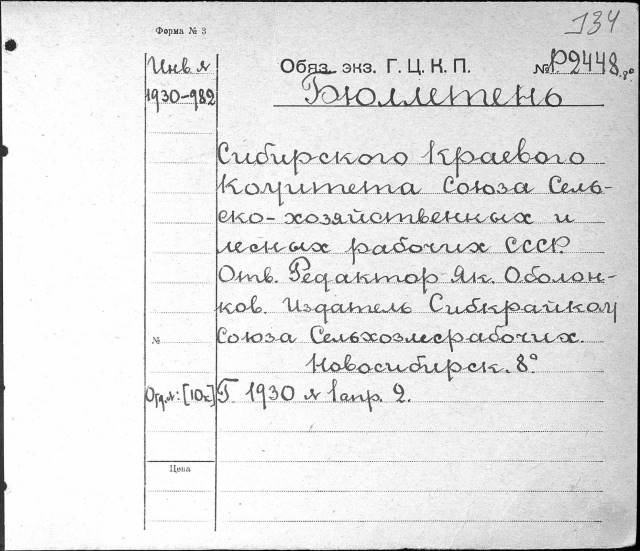 134
Форма № 3
Инв №
1930-982
Обяз. экз. Г. Ц. К. П. № Р2448.8°
Бюллетень
Сибирского Краевого
Комитета Союза Сель-
ско-хозяйственных и
лесных рабочих СССР.
Отв. Редактор Як. Оболон-
ков. Издатель Сибкрайком
№ Союза Сельхозлесрабочих.
Новосибирск. 8°
Отд. №: [10к] Г. 1930 № 1 апр. 2.
Цена